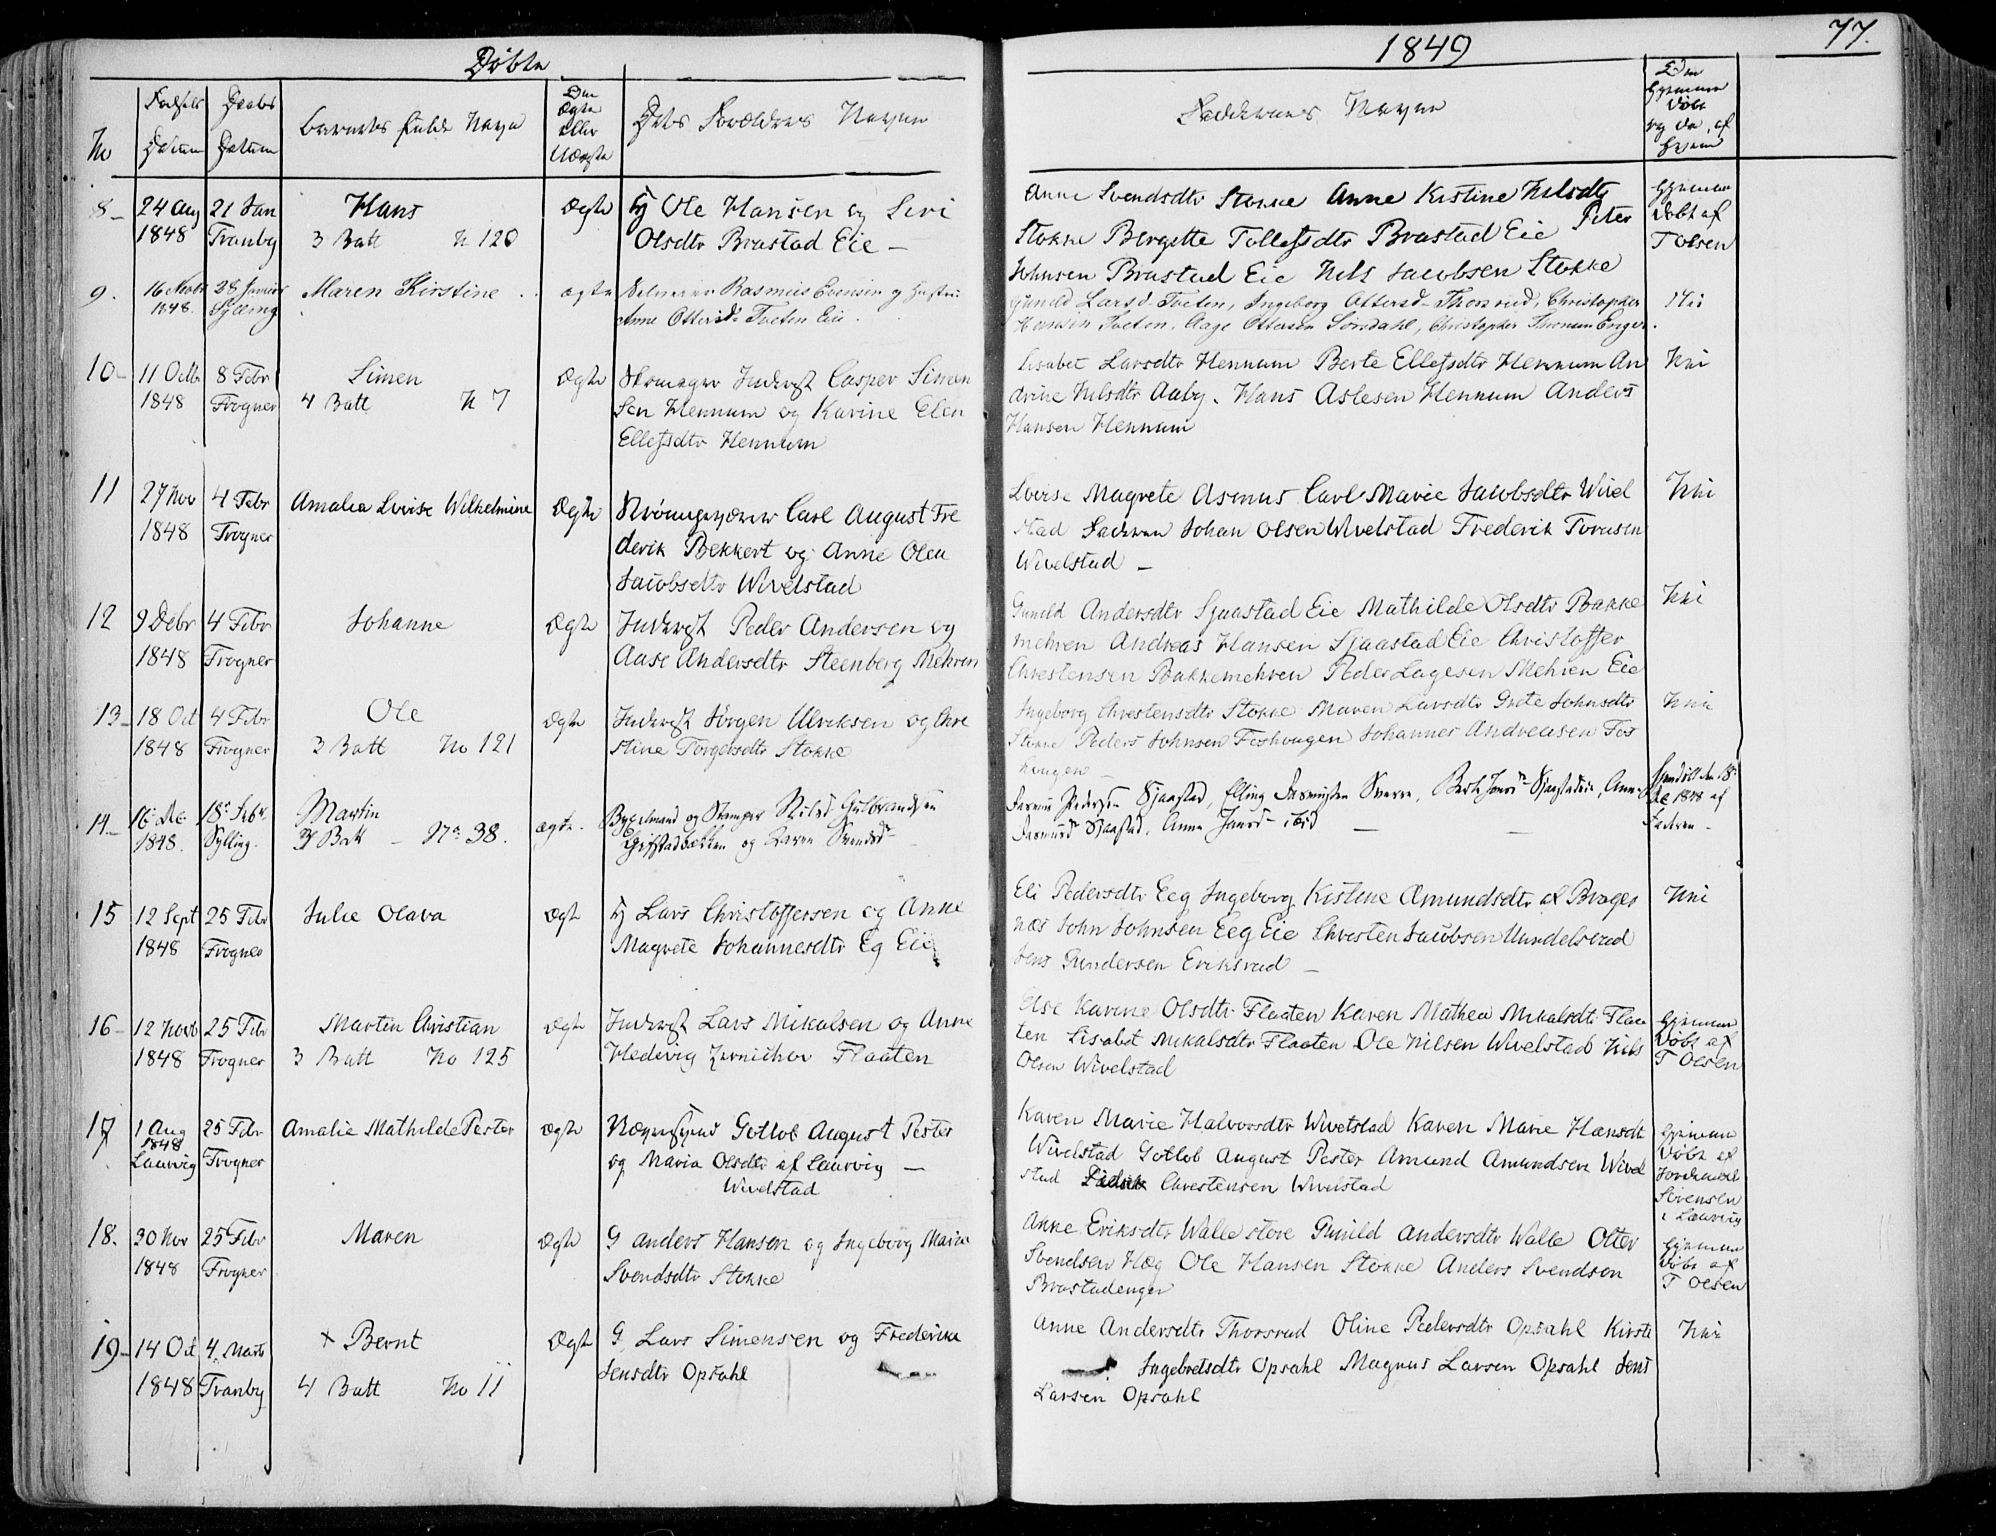 Døbte
No
Fødsels Datum
Daabs Datum
Barnets fulde Navn
Om Ægte eller Uægte
Dets Forældres Navne
8 - 24 Aug 1848
21 Jan Tranby
Hans
3 Batt N 120
Ægte
Hj Ole Hansen og Siri
Olsdtr Brastad Eie -
9. 16 Novbr 1848.
28 Januar Sylling
Maren Kirstine
ægte
Rasmus Evensen og Hustru
Anne Ottersd- Tveten Eie.
10 - 11 Octbr 1848
8 Febr Frogner
Simen
4 Batt N 7
Ægte
Skomager Inderst Casper Simen
sen Hennum og Karine Elen
Ellefsdtr Hennum
11 27 Nov 1848
4 Febr Frogner
Amalia Lovise Wilhelmine
Ægte
Carl August Fre
derik Bekkert og Anne Olea
Jacobsdtr Wivelstad
12 9 Debr 1848
4 Febr Frogner
Johanne
Ægte
Inderst Peder Andersen og
Aase Andersdtr Steenberg Mehren
13 - 18 Oct 1848
4 Febr Frogner
Ole
3 Batt No 121
Ægte
Inderst Jørgen Ulriksen og Chre
stine Torgersdtr Stokke
14 - 16 Dec 1848.
18 Febr. Sylling.
Martin
Batt - No 38.
ægte.
Bygselmand og Stamper Nils Gulbrandsen
Gifstadbakken og Karen Svendsd-
15 12 Sept 1848
25 Febr Frogner
Julie Olava
Ægte
Hj Lars Christoffersen og Anne
Magrete Johannesdtr Eg Eie
16 - 12 Novb 1848
25 Febr Frogner
Martin Christian
3 Batt No 125
Ægte
Inderst Lars Mikalsen og Anne
Hedevig Flaaten
17 1 Aug 1848 Laurvig
25 Febr Frogner
Amalie Mathilde Pester
Ægte
Gotlob August Pester
og Maria Olsdtr af Laurvig -
Wivelstad
18. 30 Nov 1848
25 Febr Frogner
Maren
Ægte
G Anders Hansen og Ingeborg Maria
Svendsdtr Stokke
19 - 14 Oct 1848
4. Marts Tranby
+ Bernt
4 Batt No 11
Ægte
G. Lars Simensen og Frederikke
Jensdtr Opsahl
1849
77.
Faddernes Navne
Om Hjemmedøbt og da, af Hvem
Anne Svendsdtr Stokke Anne Kistine Nilsdtr
Stokke Birgette Tollefsdtr Brastad Eie Peter
Johnsen Brastad Eie Nils Jacobsen Stokke
Hjemmedøbt af T Olsen
Gunild Larsd- Tveten, Ingeborg Ottersd- Thorsrud, Christopher
Hansen Tveten, Aage Ottersen Søndahl, Christopher Simensen Enger.
Nei
Lisabet Larsdtr Hennum Berte Ellefsdtr Hennum An
drine Nilsdtr Aaby. Hans Aslesen Hennum Anders
Hansen Hennum
Nei
Lovise Magrete Asmus Carl Marie Jacobsdtr Wivel
stad Faderen Johan Olsen Wivelstad Frederik Torensen
Wivelstad -
Nei
Gunild Andersdtr Sjaastad Eie Mathilde Olsdtr Bakke
mehren Andreas Hansen Sjaastad Eie Christoffer
Chrestensen Bakkemehren Peder Lagesen Mehren Eie
Nei
Ingeborg Chrestensdtr Stokke Maren Larsdtr Grete Johnsdtr
Stokke Peders Johnsen Foshougen Johannes Andreasen Fos
hougen -
Nei
Pedersen Sjaastad, Elling Svarre, Berthe Jansd- Sjaastadeie, Anne
Sjaastad, Anne Jansd- ibid -
Hjemdøbt den 18 Dec 1848 af Faderen -
Eli Pedersdtr Eeg Ingeborg Kistine Amundsdtr af Brages
næs John Johnsen Eeg Eie Chresten Jacobsen Unnelsrud
Jens Gundersen Eriksrud -
Nei
Else Karine Olsdtr Flaaten Karen Mathea Mikalsdtr Flaa
ten Lisabet Mikalsdtr Flaaten Ole Nilsen Wivelstad Nils
Olsen Wivelstad
Hjemmedøbt af T Olsen
Karen Marie Halvorsdtr Wivelstad Karen Marie Hansdt
Wivelstad Gotlob August Pester Amund Amundsen Wivel
stad Chrestensen Wivelstad
Hjemmedøbt af Jordemoder Sørensen i Laurvig
Anne Eriksdtr Walle store Gunild Andersdtr Walle Otter
Svendsen Hæg Ole Hansen Stokke Anders Svendsen
Brastadenger
Hjemmedøbt af T Olsen
Anne Andersdtr Thorsrud Oline Pedersdtr Opsahl Kirsti
Ingebretsdtr Opsahl Magnus Larsen Opsahl Jens
Larsen Opsahl
Nei